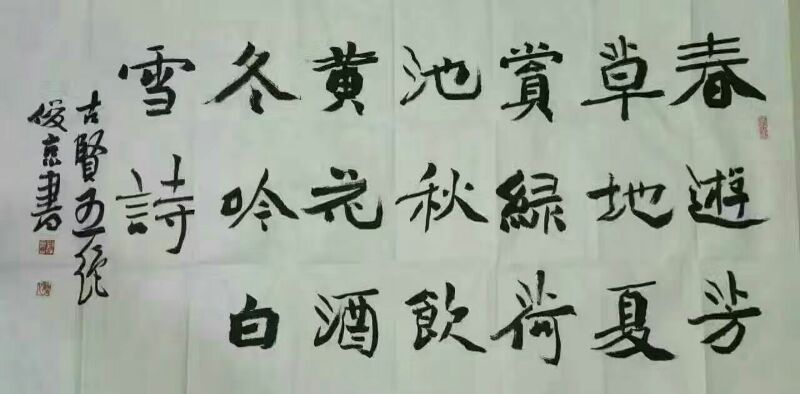 春遊芳
草地夏
賞綠荷
池秋飲
黄花酒
冬吟白
雪詩
古賢五絶
俊京書